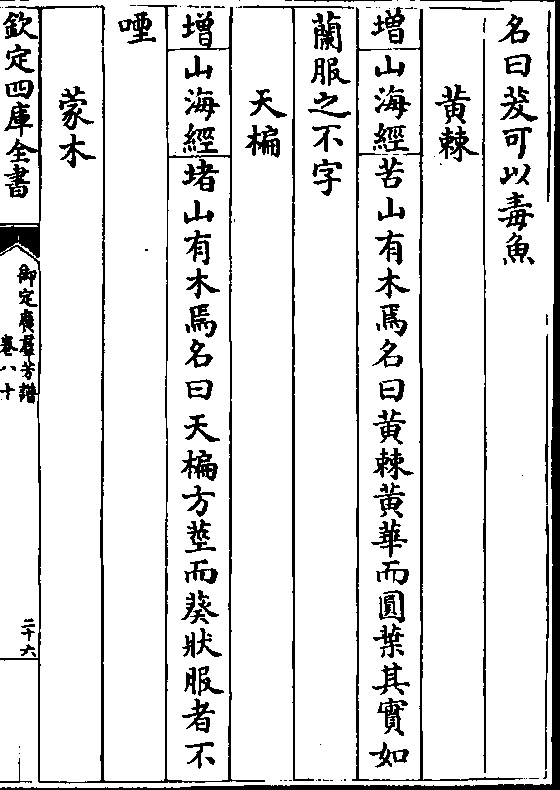 名曰茇可以毒魚
黄棘
増山海經苦山有木焉名曰黄棘黄華而圓葉其實如
蘭服之不字
天楄
増山海經堵山有木焉名曰天楄方莖而葵狀服者不
㖶
蒙木
欽定四庫全書
御定廣羣芳譜
卷八十
二十六